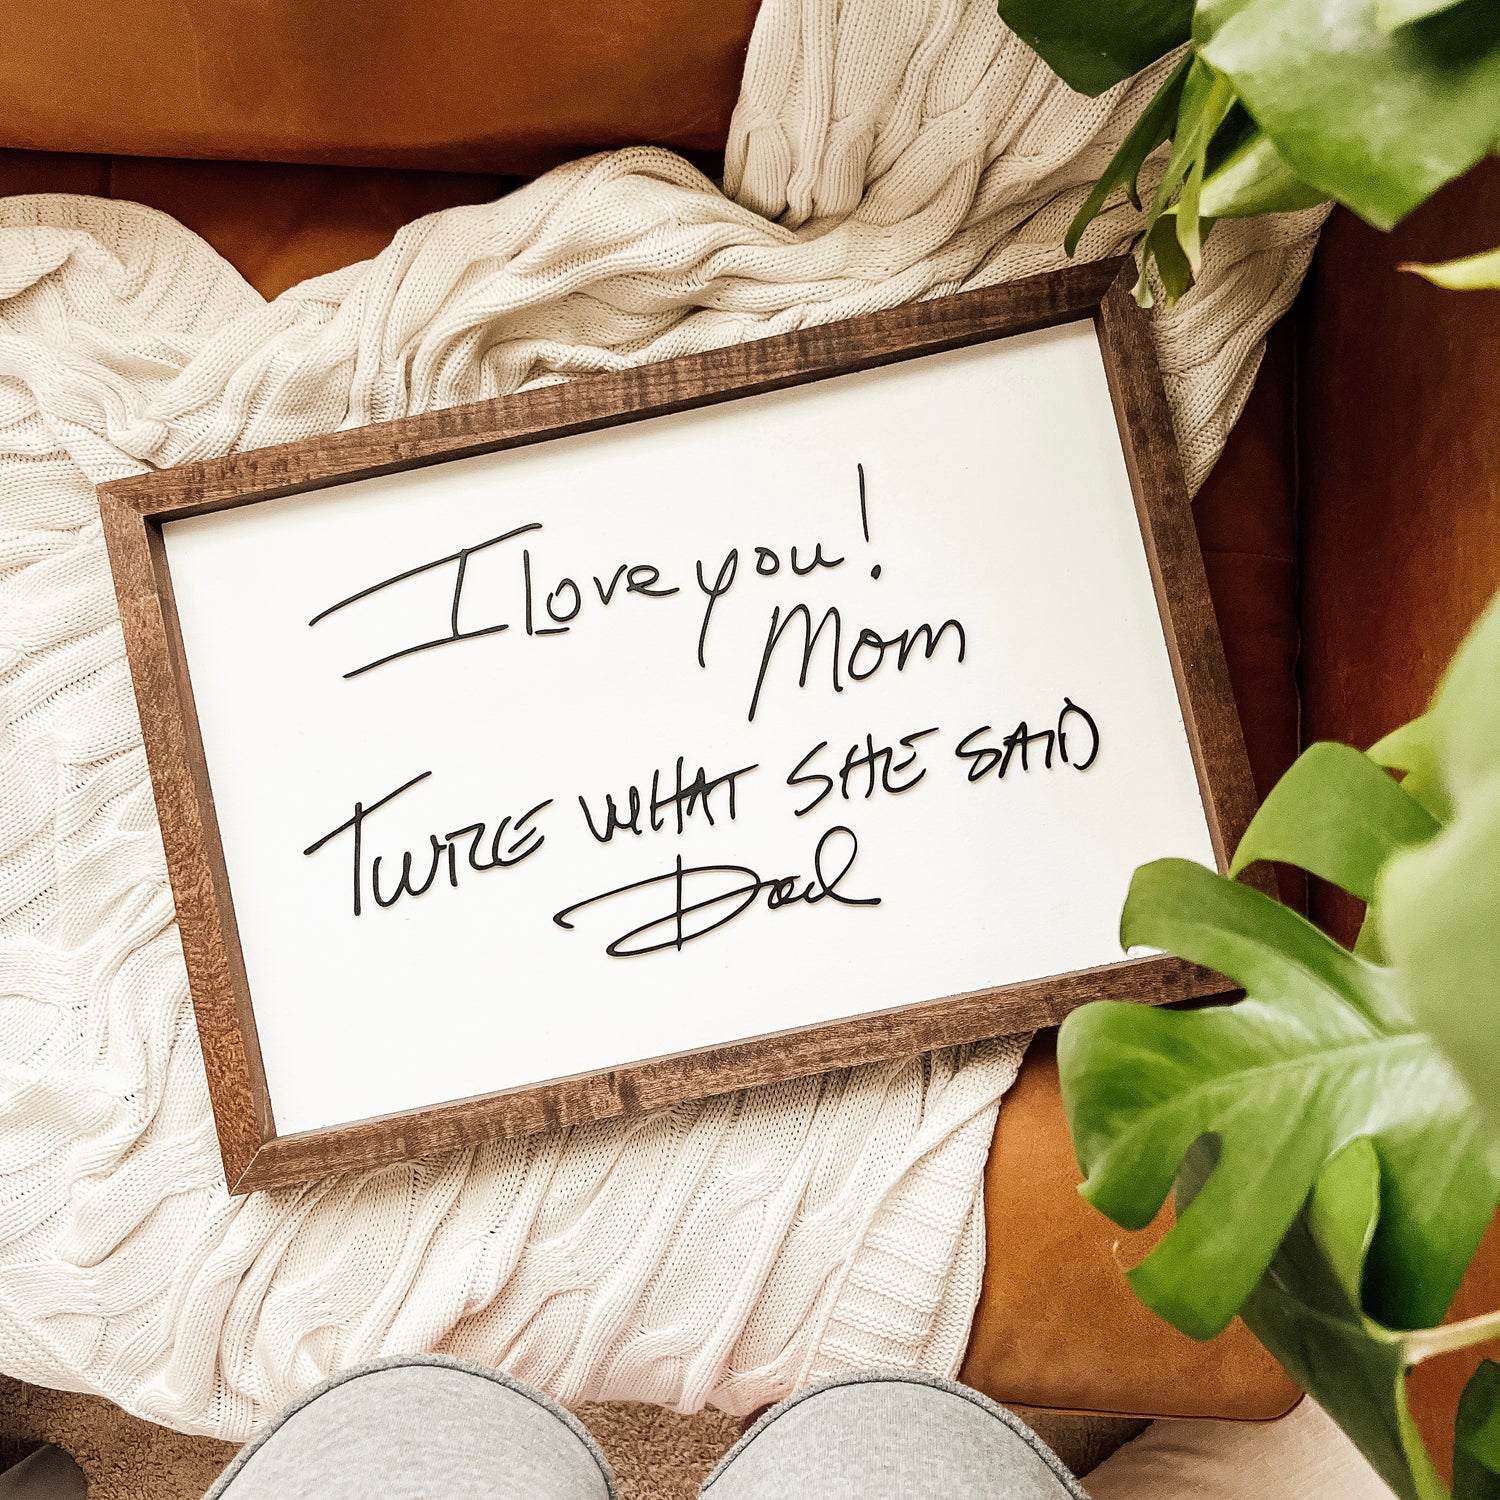 I Love you!
Mom
TWICE WHAT SHE SAID
Dad